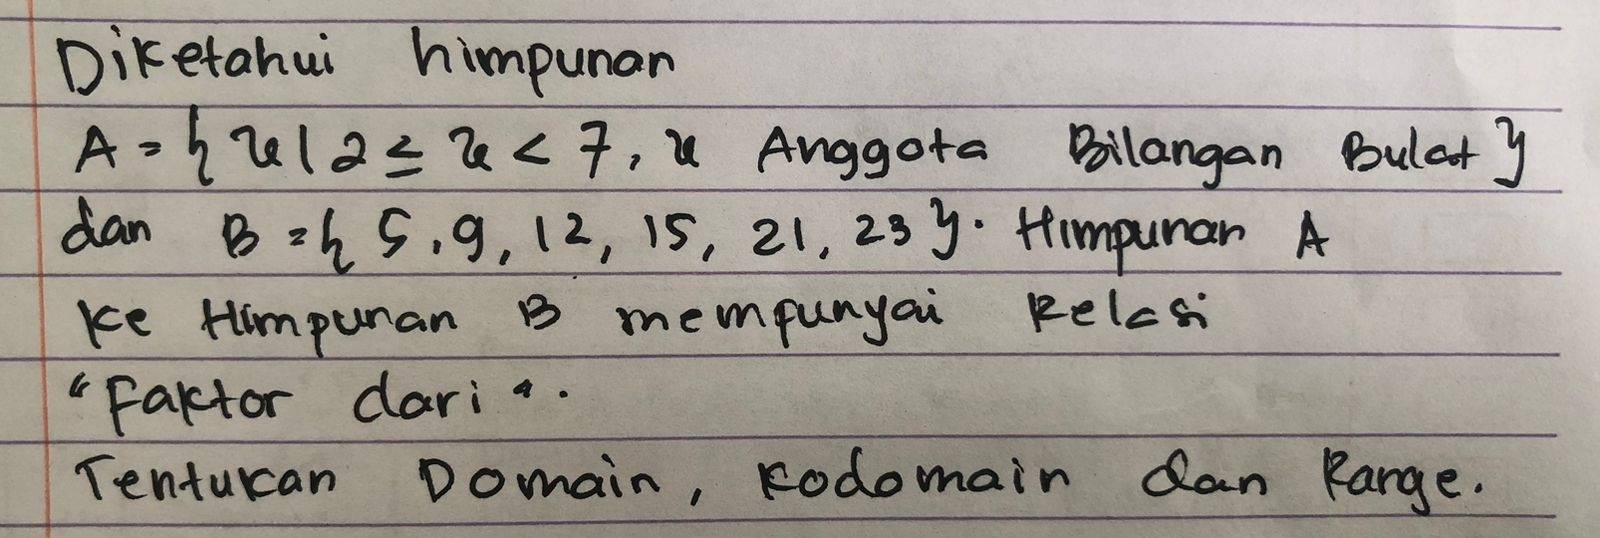 Diketahui himpunan
A = { x | 2 ≤ x < 7, x Anggota Bilangan Bulat }
dan B = { 5, 9, 12, 15, 21, 23 }. Himpunan A
ke Himpunan B mempunyai Relasi
"Faktor dari".
Tentukan Domain, Kodomain dan Range.